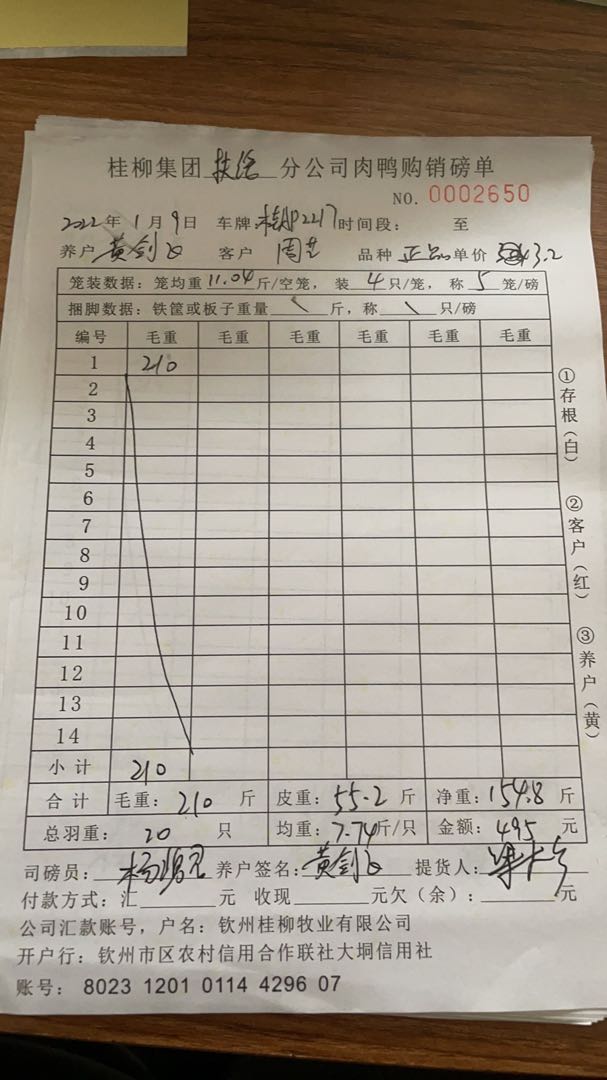 桂柳集团 分公司肉鸭购销磅单
NO. 0002650
2022年 1月 9日 车牌: P2217 时间段: 至
养户 黄剑飞 客户 周 品种 正品 单价 3.2
笼装数据: 笼均重 11.04 斤/空笼, 装 4 只/笼, 称 5 笼/磅
捆脚数据: 铁筐或板子重量 \ 斤, 称 \ 只/磅
编号 毛重 毛重 毛重 毛重 毛重 毛重
1 210
2
3
4
5
6
7
8
9
10
11
12
13
14
小计 210
合计 毛重: 210 斤 皮重: 55.2 斤 净重: 154.8 斤
总羽重: 20 只 均重: 7.74 斤/只 金额: 495 元
司磅员: 杨 养户签名: 黄剑飞 提货人:
付款方式: 汇 元 收现 元欠(余): 元
公司汇款账号, 户名: 钦州桂柳牧业有限公司
开户行: 钦州市区农村信用合作联社大垌信用社
账号: 8023 1201 0114 4296 07
①存根(白)
②客户(红)
③养户(黄)